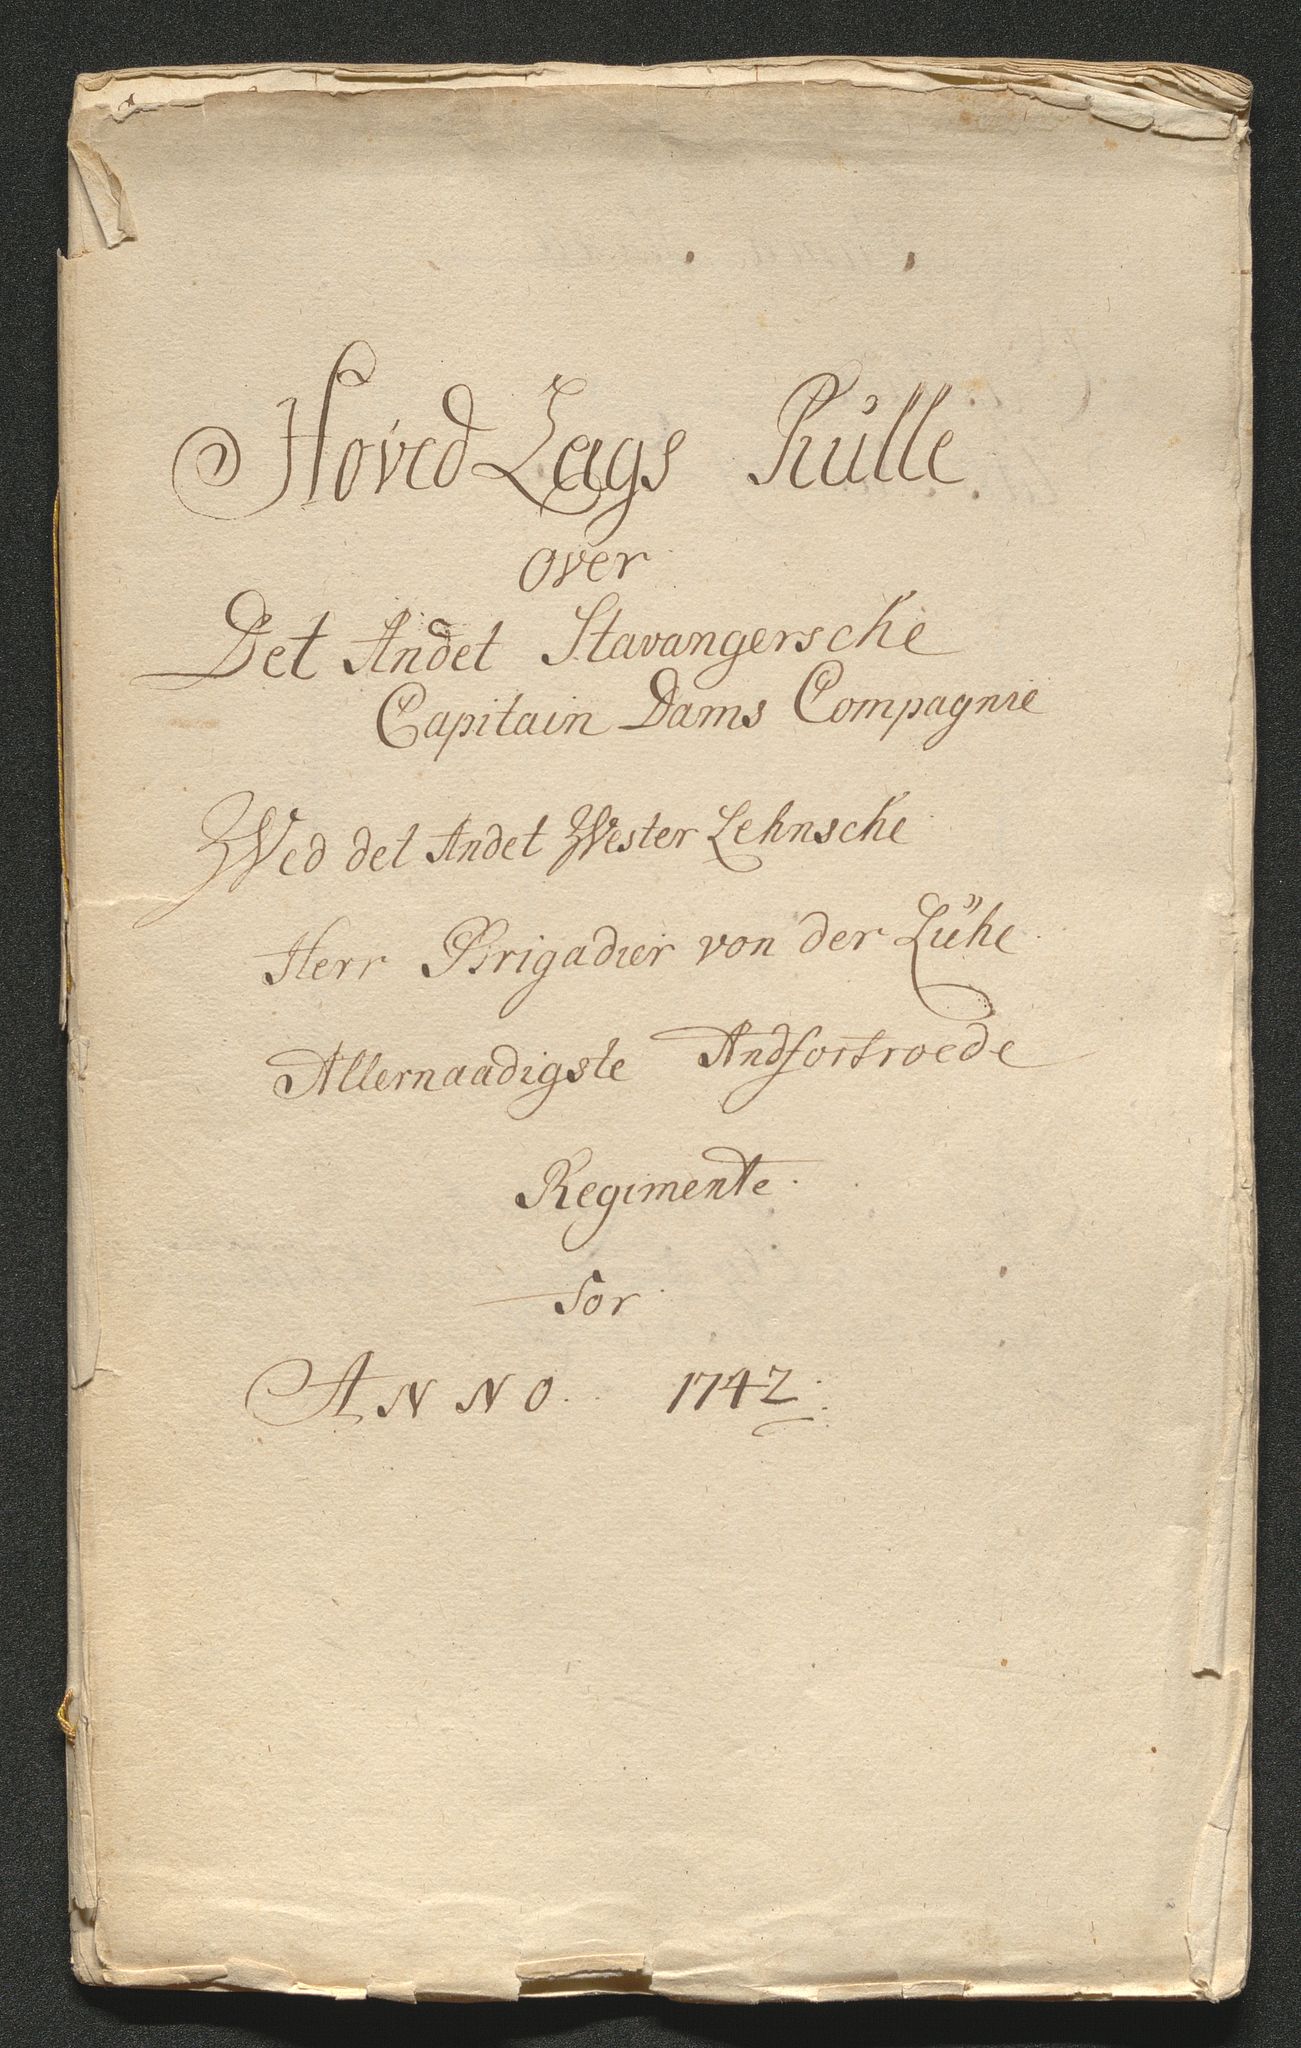 Hoved Lags Rülle
over
Det Andet Stavangersche
Capitain Dams Compagnie
Wed det Andet Wester Lehnsche
Herr Brigadier von der Lühe
Allernaadigste Andfortroede
Regimente
for
ANNO. 1742.